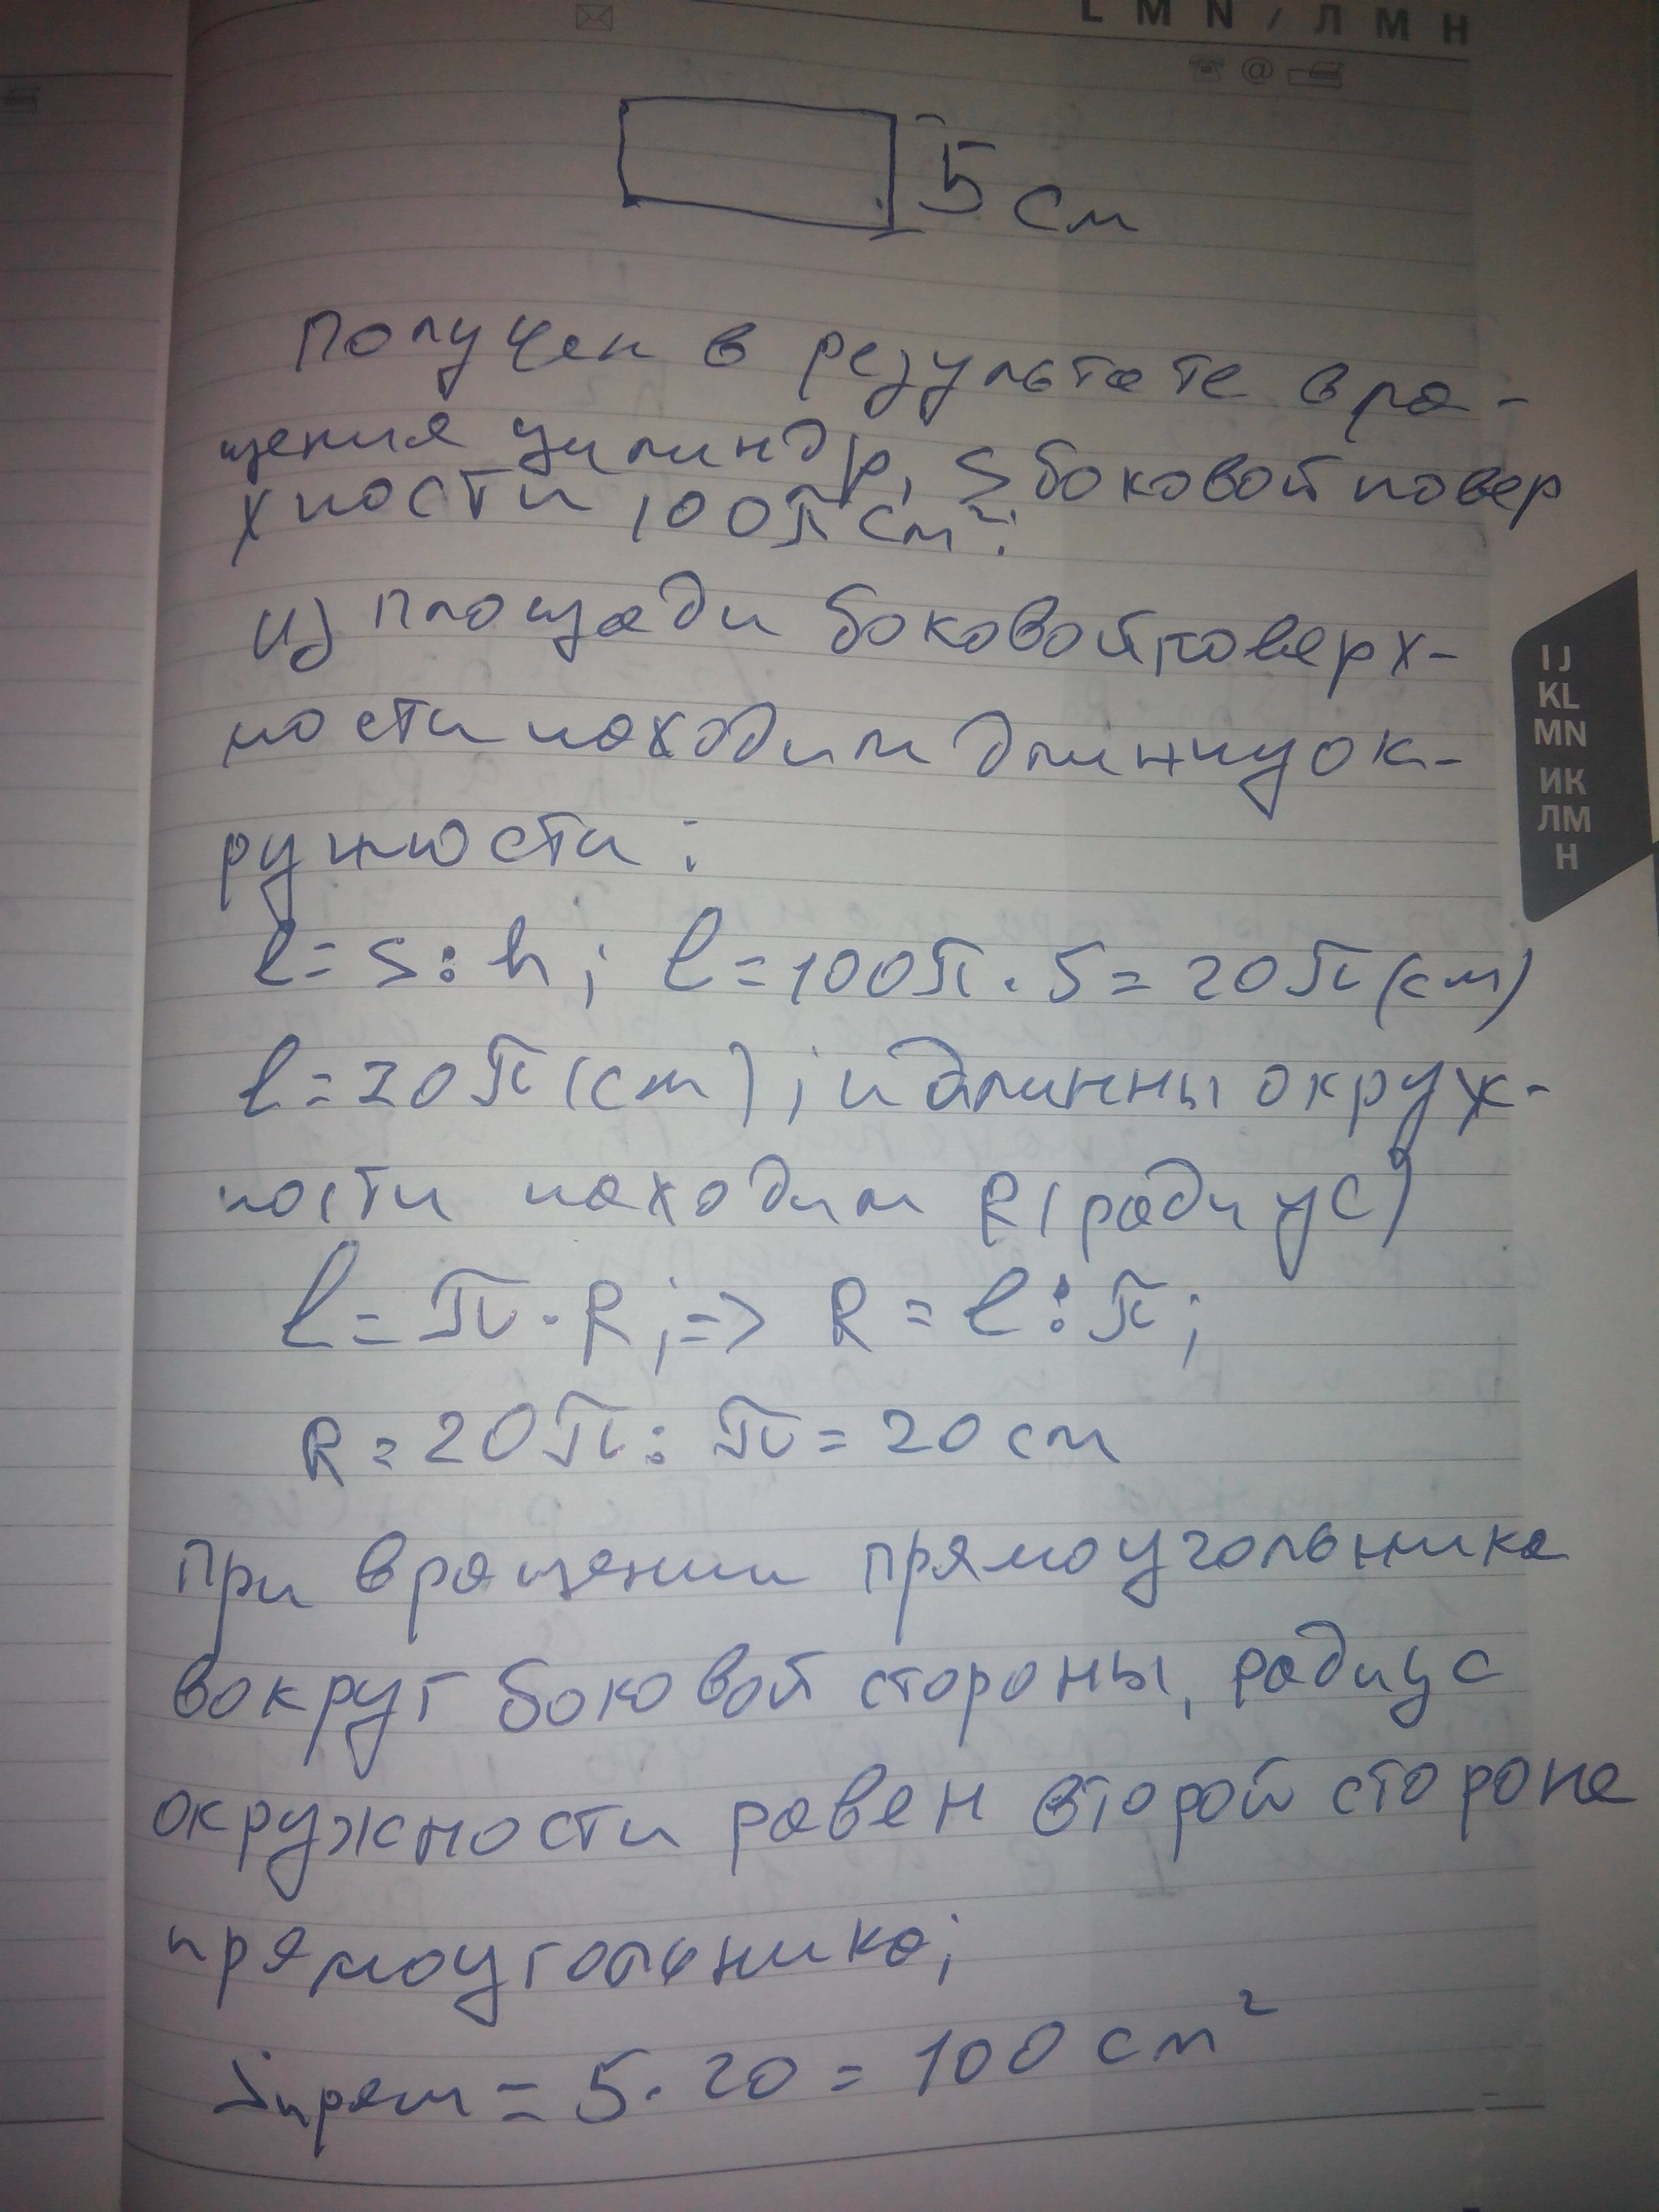 L M N / Л М Н
5 см
Получен в результате вра-
щения цилиндр, S боковой повер
хности 100π см².
Из площади боковой поверх-
ности находим длинну ок-
ружности:
l = S : h; l = 100π · 5 = 20π (см)
l = 20π (см); и длинны окруж-
ности находим R (радиус)
l = π · R; => R = l : π;
R = 20π : π = 20 см
При вращении прямоугольника
вокруг боковой стороны, радиус
окружности равен второй стороне
прямоугольника;
Sпрям = 5 · 20 = 100 см²
I J
KL
MN
ИК
ЛМ
Н